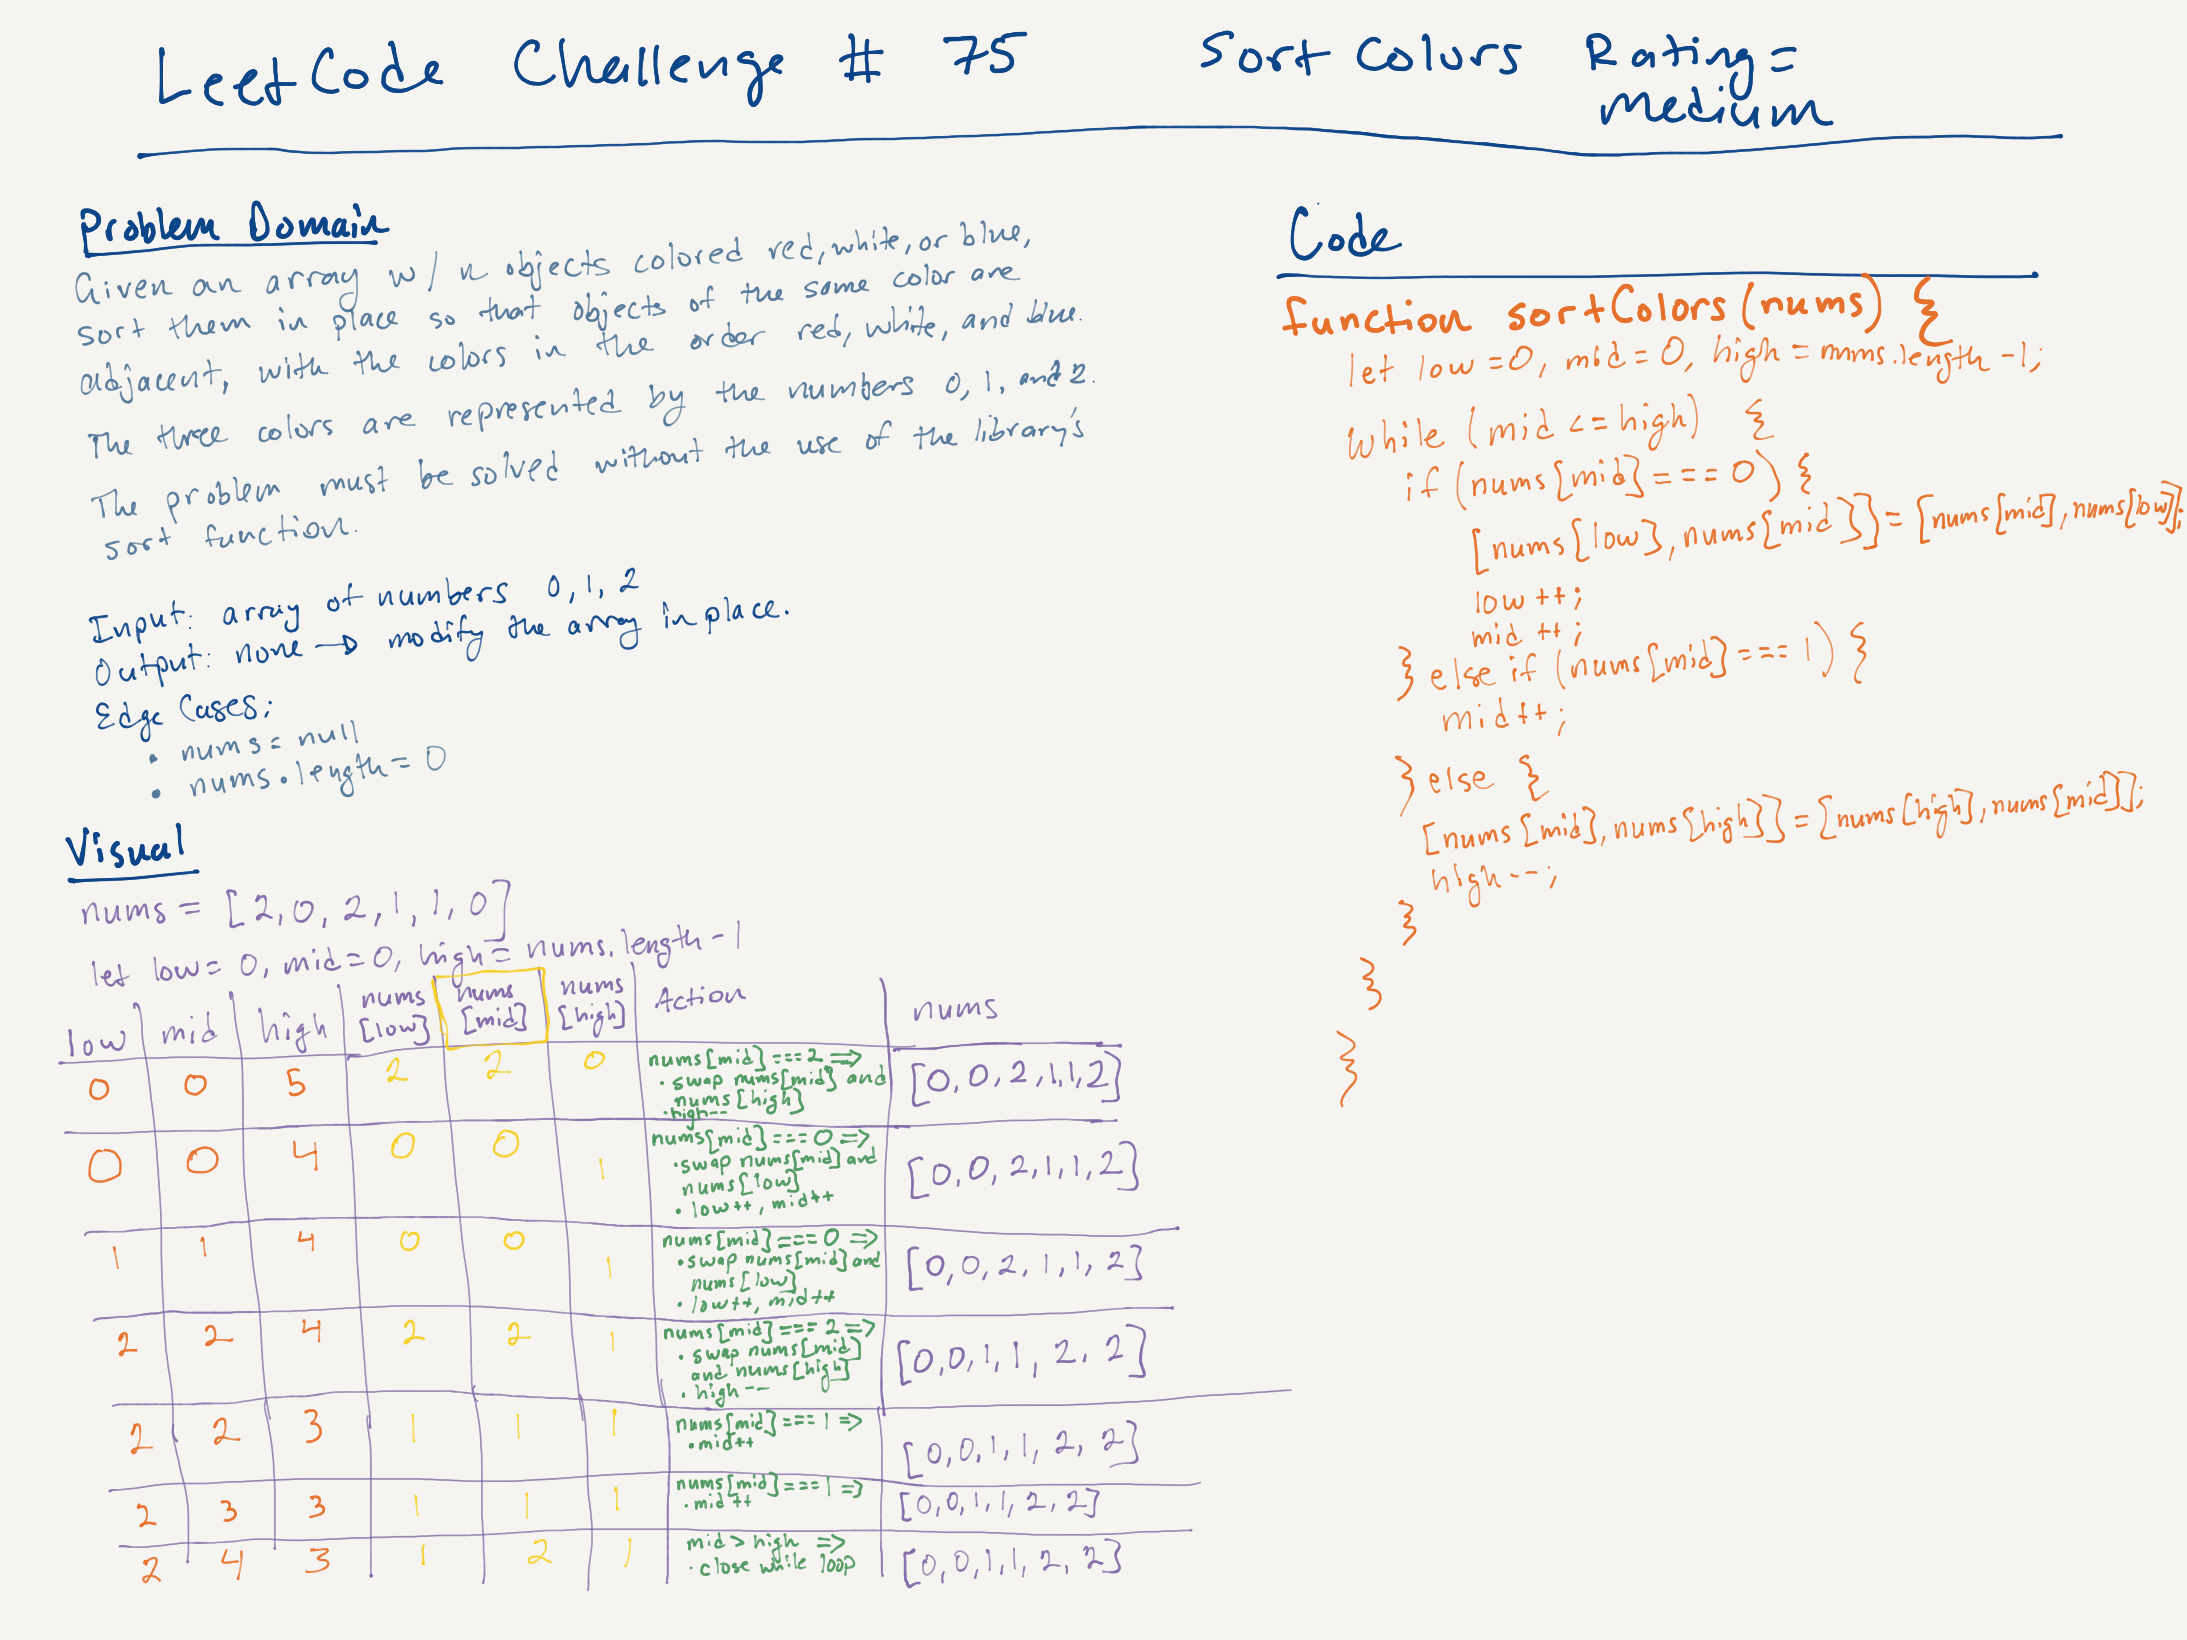 LeetCode Challenge # 75 Sort Colors Rating =
Medium
Problem Domain
Given an array w/ n objects colored red, white, or blue,
sort them in place so that objects of the same color are
adjacent, with the colors in the order red, white, and blue.
The three colors are represented by the numbers 0, 1, and 2.
The problem must be solved without the use of the library's
sort function.
Input: array of numbers 0, 1, 2
Output: none → modify the array in place.
Edge Cases:
• nums = null
• nums.length = 0
Visual
nums = [2, 0, 2, 1, 1, 0]
let low = 0, mid = 0, high = nums.length - 1
low mid high nums [low] nums [mid] nums [high] Action nums
0 0 5 2 2 0 nums[mid] === 2 => [0, 0, 2, 1, 1, 2]
• swap nums[mid] and
nums[high]
• high--
0 0 4 0 0 1 nums[mid] === 0 => [0, 0, 2, 1, 1, 2]
• swap nums[mid] and
nums[low]
• low++, mid++
1 1 4 0 0 1 nums[mid] === 0 => [0, 0, 2, 1, 1, 2]
• swap nums[mid] and
nums[low]
• low++, mid++
2 2 4 2 2 1 nums[mid] === 2 => [0, 0, 1, 1, 2, 2]
• swap nums[mid]
and nums[high]
• high--
2 2 3 1 1 1 nums[mid] === 1 => [0, 0, 1, 1, 2, 2]
• mid++
2 3 3 1 1 1 nums[mid] === 1 => [0, 0, 1, 1, 2, 2]
• mid++
2 4 3 1 2 1 mid > high => [0, 0, 1, 1, 2, 2]
• close while loop
Code
function sortColors(nums) {
let low = 0, mid = 0, high = nums.length - 1;
while (mid <= high) {
if (nums[mid] === 0) {
[nums[low], nums[mid]] = [nums[mid], nums[low]];
low ++;
mid ++;
} else if (nums[mid] === 1) {
mid++;
} else {
[nums[mid], nums[high]] = [nums[high], nums[mid]];
high--;
}
}
}